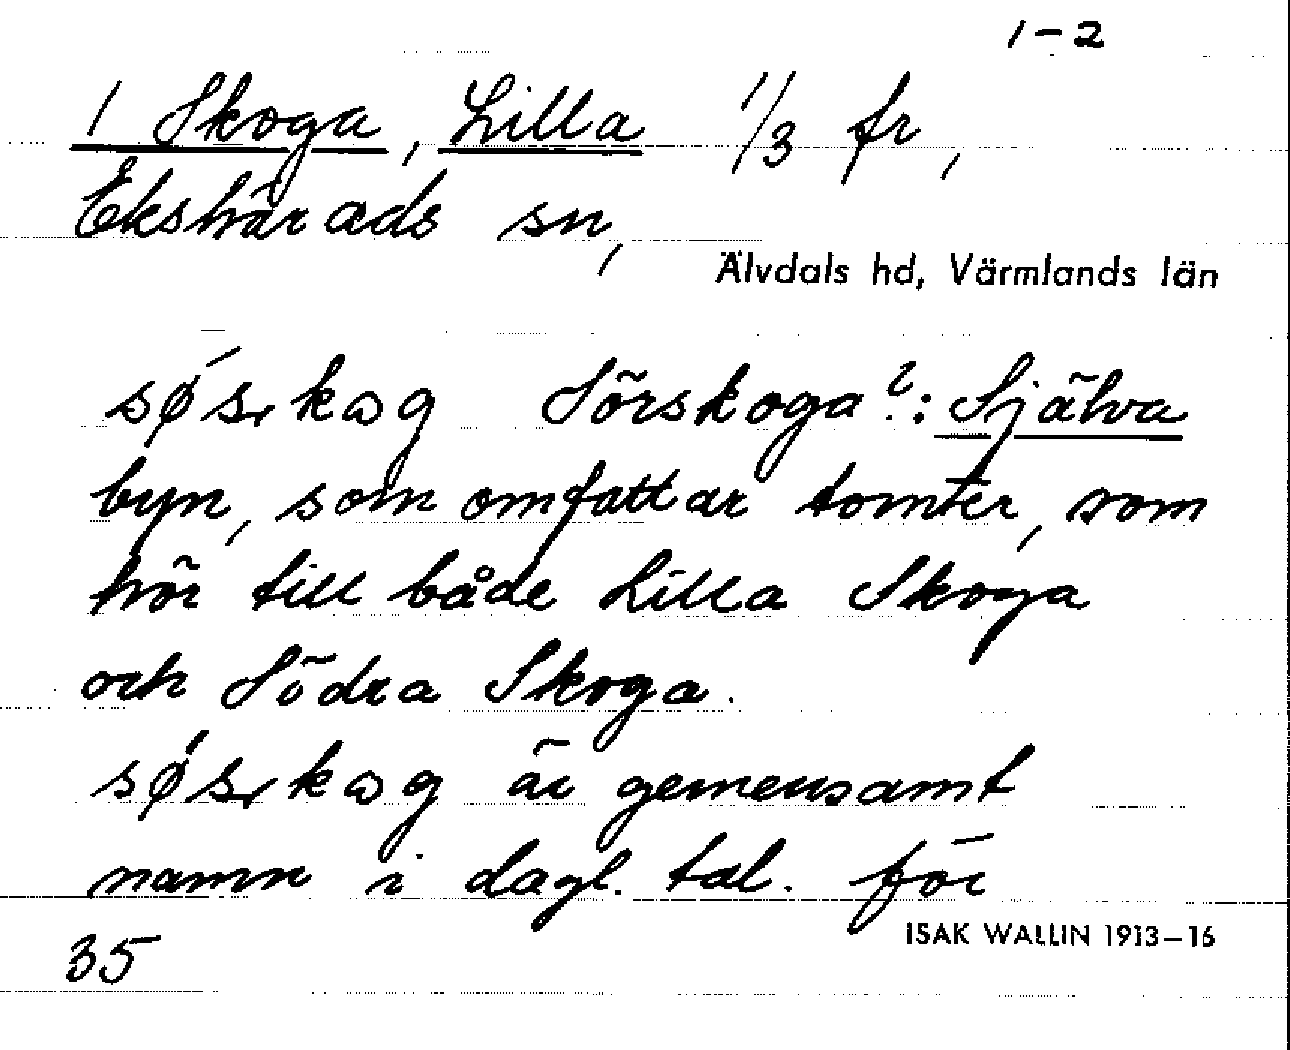 1-2
1 Skoga, Lilla 1/3 fr,
Ekshärads sn,
Älvdals hd, Värmlands län
sǿsˎkɷg Sörskoga?: Själva
byn, som omfattar tomter, som
hör till både Lilla Skoga
och Södra Skoga.
sǿsˎkɷg är gemensamt
namn i dagl. tal. för
ISAK WALLIN 1913-16
35